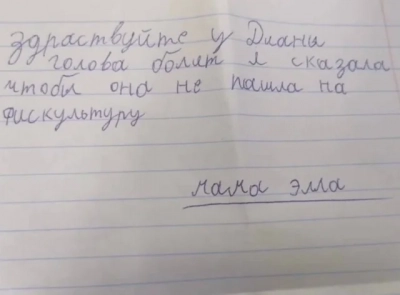 здраствуйте у Дианы
голова болит я сказала
чтобы она не пошла на
фискультуру
мама элла